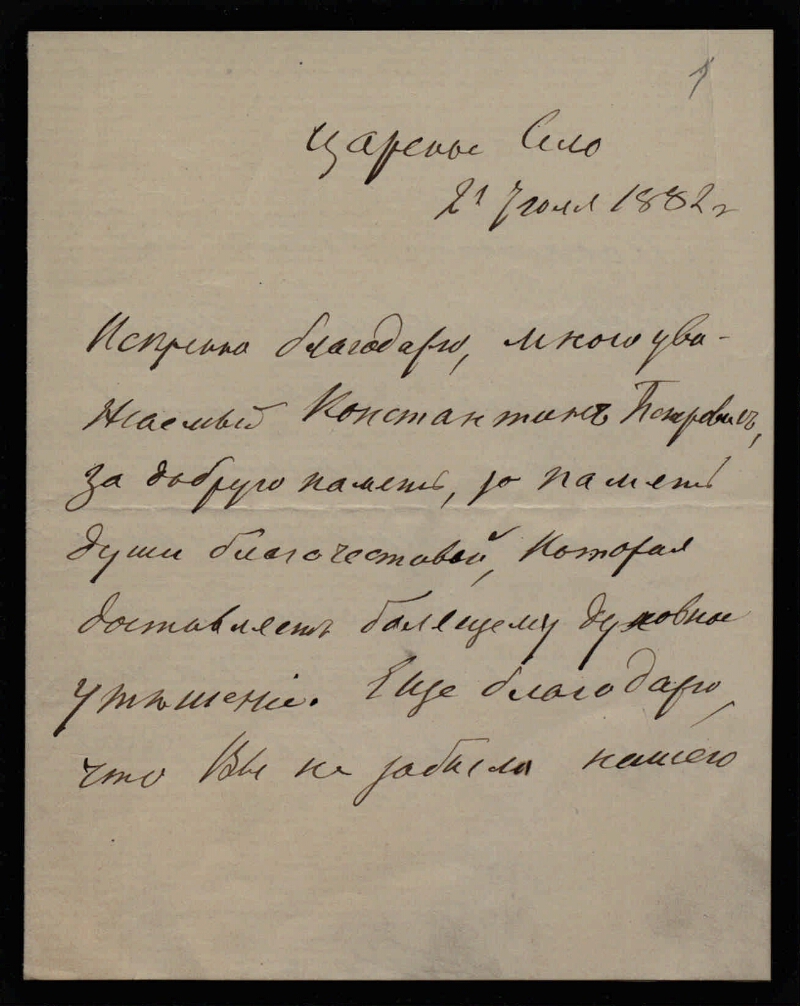 Царское Село
21 Іюля 1882 г
Искренно благодарю, многоува-
жаемый Константинъ Петровичъ,
за добрую память, за память
души благочестивой, которая
доставляетъ болящему духовное
утѣшеніе. Еще благодарю,
что Вы не забыли нашего